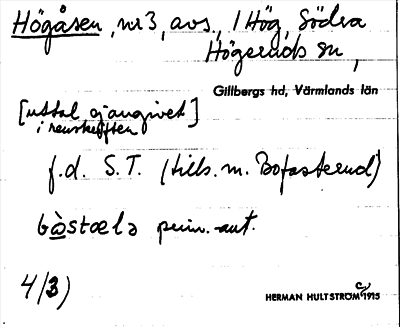 Högåsen, nr 3, avs., i Hög, Södra
Högeruds sn,
Gillbergs hd, Värmlands län
[uttal ej angivet]
i renskriften
f.d. S.T. (tills. m. Bofasterud)
bòstælə prim.-ant.
4/3)
HERMAN HULTSTRÖM c/ 1915